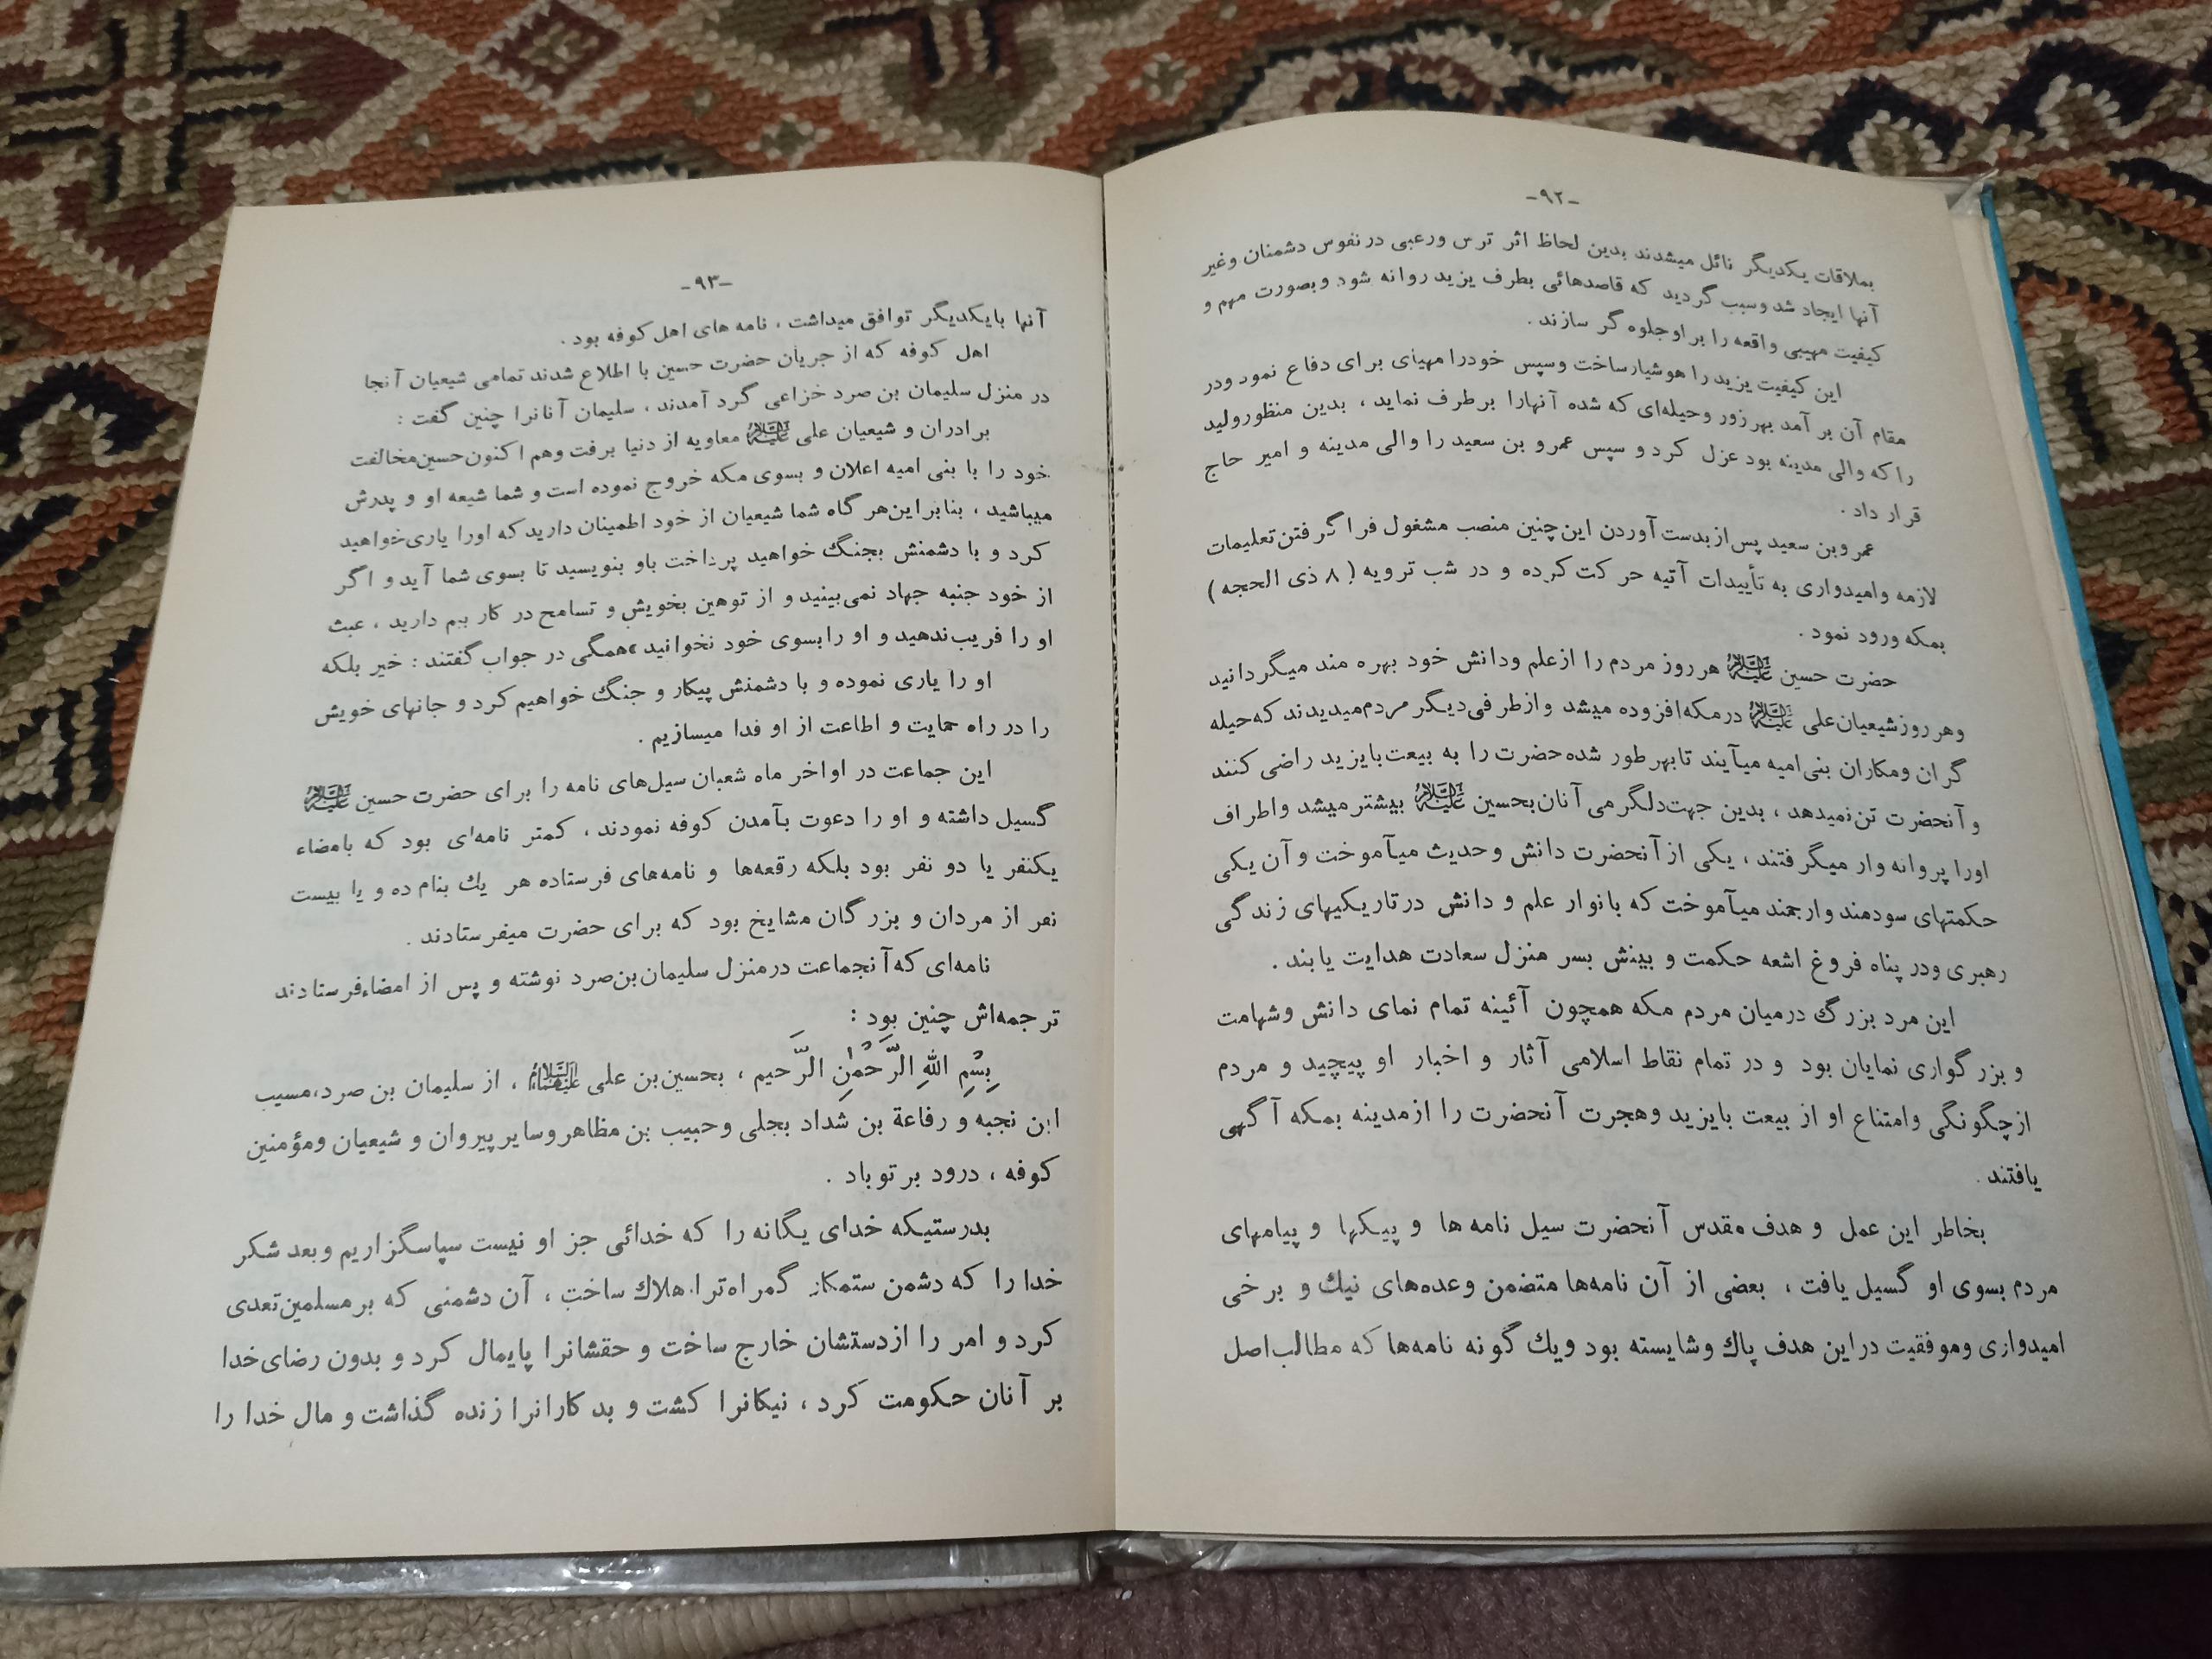 -۹۲-
بملاقات یکدیگر نائل میشدند بدین لحاظ اثر ترس ورعبی در نفوس دشمنان وغیر
آنها ایجاد شد وسبب گردید که قاصدهائی بطرف یزید روانه شود وبصورت مهم و
کیفیت مهیبی واقعه را بر اوجلوه گر سازند .
این کیفیت یزید را هوشیارساخت وسپس خودرا مهیای برای دفاع نمود ودر
مقام آن بر آمد بهر زور وحیله‌ای که شده آنهارا برطرف نماید ، بدین منظورولید
را که والی مدینه بود عزل کرد و سپس عمرو بن سعید را والی مدینه و امیر حاج
قرار داد .
عمروبن سعید پس‌از بدست آوردن این چنین منصب مشغول فرا گرفتن تعلیمات
لازمه وامیدواری به تأییدات آتیه حرکت کرده و در شب ترویه ( ۸ ذی الحجه )
بمکه ورود نمود .
حضرت حسین علیه‌السلام هر روز مردم را ازعلم ودانش خود بهره مند میگردانید
وهر روز شیعیان علی علیه‌السلام درمکه افزوده میشد و ازطرفی دیگر مردم میدیدند که حیله
گران ومکاران بنی امیه میآیند تا بهر طور شده حضرت را به بیعت بایزید راضی کنند
و آنحضرت تن نمیدهد ، بدین جهت دلگرمی آنان بحسین علیه‌السلام بیشتر میشد واطراف
اورا پروانه وار میگرفتند ، یکی ازآنحضرت دانش وحدیث میآموخت و آن یکی
حکمتهای سودمند وارجمند میآموخت که بانوار علم و دانش درتاریکیهای زندگی
رهبری ودر پناه فروغ اشعه حکمت و بینش بسر منزل سعادت هدایت یابند .
این مرد بزرگ درمیان مردم مکه همچون آئینه تمام نمای دانش وشهامت
و بزرگواری نمایان بود و در تمام نقاط اسلامی آثار و اخبار او پیچید و مردم
ازچگونگی وامتناع او از بیعت بایزید وهجرت آنحضرت را ازمدینه بمکه آگهی
یافتند .
بخاطر این عمل و هدف مقدس آنحضرت سیل نامه ها و پیکها و پیامهای
مردم بسوی او گسیل یافت ، بعضی از آن نامه‌ها متضمن وعده‌های نیك و برخی
امیدواری وموفقیت دراین هدف پاك وشایسته بود ویك گونه نامه‌ها که مطالب‌اصل
-۹۳-
آنها بایکدیگر توافق میداشت ، نامه های اهل کوفه بود .
اهل کوفه که از جریان حضرت حسین با اطلاع شدند تمامی شیعیان آنجا
در منزل سلیمان بن صرد خزاعی گرد آمدند ، سلیمان آنانرا چنین گفت :
برادران و شیعیان علی علیه‌السلام معاویه از دنیا برفت وهم اکنون حسین مخالفت
خود را با بنی امیه اعلان و بسوی مکه خروج نموده است و شما شیعه او و پدرش
میباشید ، بنابراین هر گاه شما شیعیان از خود اطمینان دارید که اورا یاری خواهید
کرد و با دشمنش بجنگ خواهید پرداخت باو بنویسید تا بسوی شما آید و اگر
از خود جنبه جهاد نمی‌بینید و از توهین بخویش و تسامح در کار بیم دارید ، عبث
او را فریب ندهید و او را بسوی خود نخوانید» همگی در جواب گفتند : خیر بلکه
او را یاری نموده و با دشمنش پیکار و جنگ خواهیم کرد و جانهای خویش
را در راه حمایت و اطاعت از او فدا میسازیم .
این جماعت در اواخر ماه شعبان سیل‌های نامه را برای حضرت حسین علیه‌السلام
گسیل داشته و او را دعوت بآمدن کوفه نمودند ، کمتر نامه‌ای بود که بامضاء
یکنفر یا دو نفر بود بلکه رقعه‌ها و نامه‌های فرستاده هر یك بنام ده و یا بیست
نفر از مردان و بزرگان مشایخ بود که برای حضرت میفرستادند .
نامه‌ای که آنجماعت درمنزل سلیمان بن صرد نوشته و پس از امضاء فرستادند
ترجمه‌اش چنین بود :
بِسْمِ اللهِ الرَّحْمٰنِ الرَّحیم ، بحسین بن علی علیهماالسلام ، از سلیمان بن صرد،مسیب
ابن نجبه و رفاعة بن شداد بجلی وحبیب بن مظاهر وسایر پیروان و شیعیان ومؤمنین
کوفه ، درود بر تو باد .
بدرستیکه خدای یگانه را که خدائی جز او نیست سپاسگزاریم وبعد شکر
خدا را که دشمن ستمکار گمراه ترا هلاك ساخت ، آن دشمنی که بر مسلمین تعدی
کرد و امر را ازدستشان خارج ساخت و حقشانرا پایمال کرد و بدون رضای خدا
بر آنان حکومت کرد ، نیکانرا کشت و بدکارانرا زنده گذاشت و مال خدا را